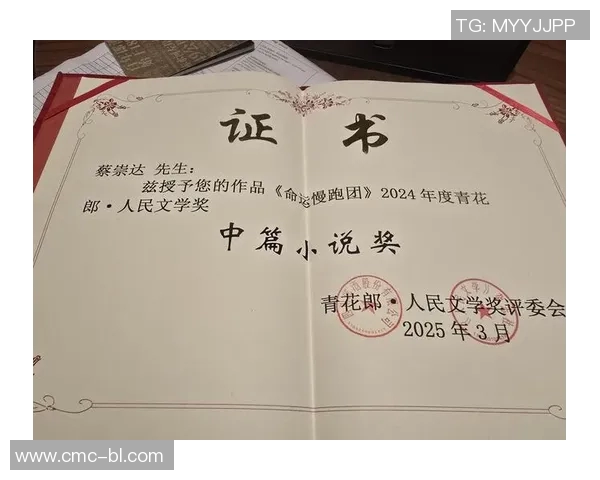 TG: MYYJJPP
证 书
蔡崇达 先生：
兹授予您的作品《命运慢跑团》2024 年度青花
郎·人民文学奖
中篇小说奖
青花郎·人民文学奖评委会
2025 年 3 月
www.cmc-bl.com